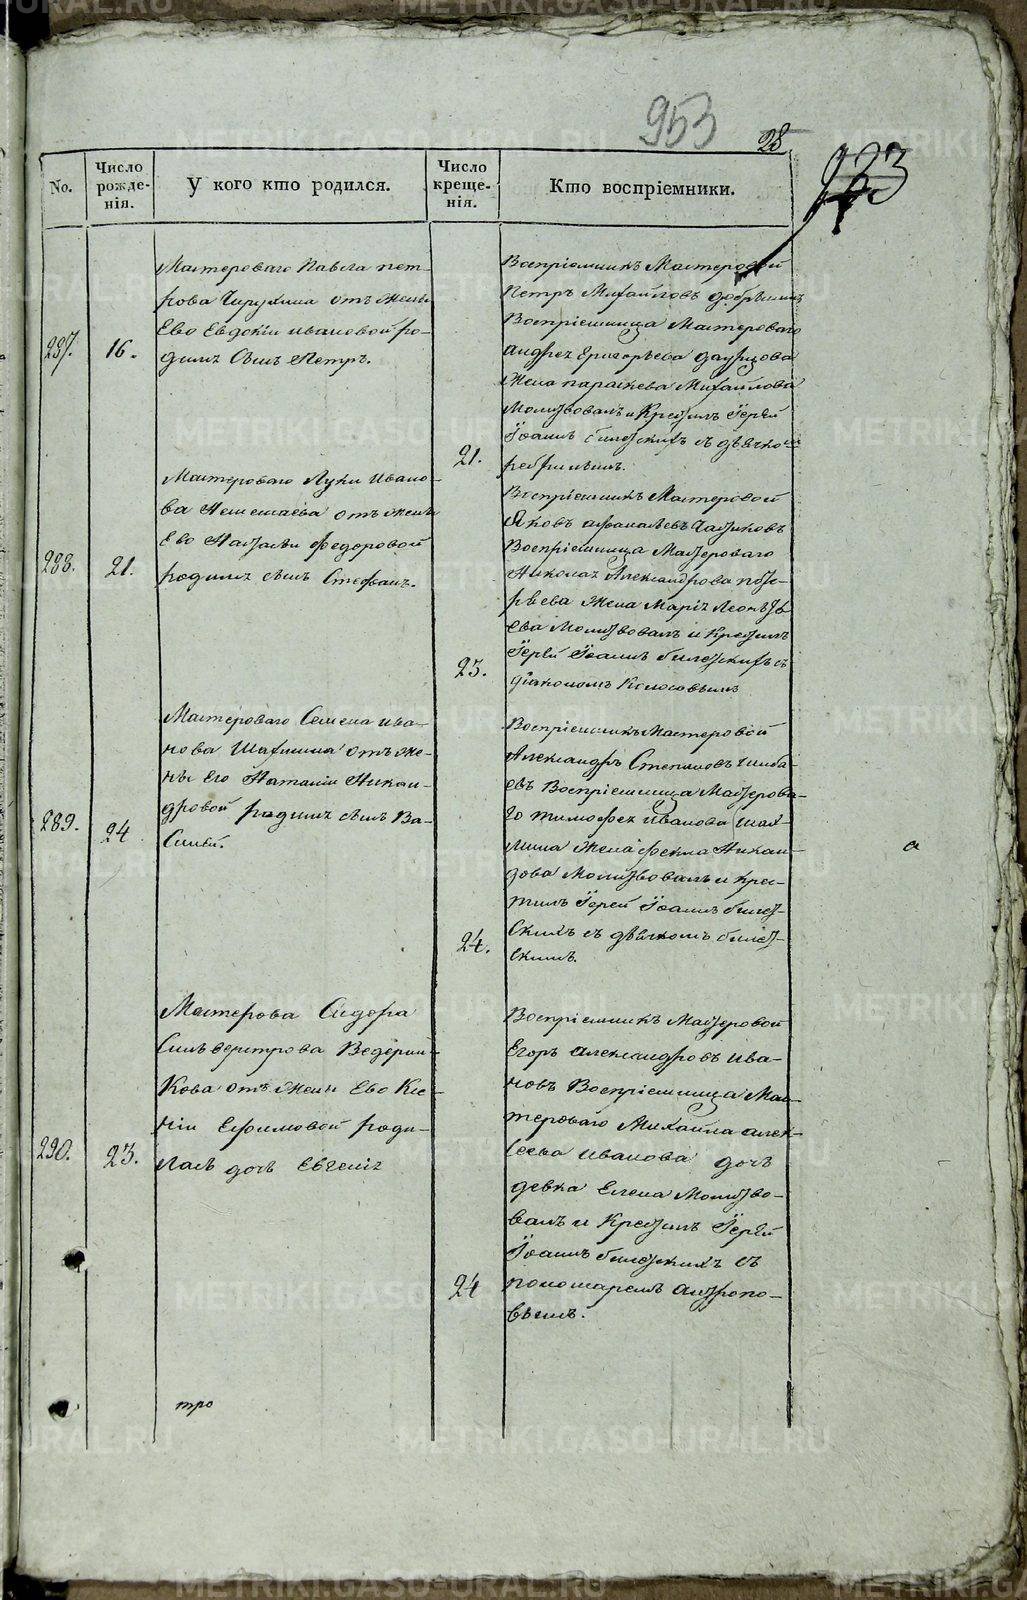 953
28
No.
Число рожде-
нія.
У кого кто родился.
Число креще-
нія.
Кто воспріемники.
287.
16.
Мастероваго Павла пет-
рова отъ жены
Ево Евдокіи ивановой ро-
дился Сынъ Петръ.
21.
Воспріемникъ Мастеровой
Петръ Михайловъ добрынинъ
Воспріемница Мастероваго
андрея Григорьева
Жена параскева Михайлова
Молитвовалъ и Крестилъ Іерей
Іоаннъ билетскихъ съ дьячкомъ
288.
21.
Мастероваго Луки Ивано-
ва отъ жены
Ево Натальи федоровой
родился сынъ Стефанъ.
23.
Воспріемникъ Мастеровой
Яковъ афанасьевъ
Воспріемница Мастероваго
Николая Александрова
Жена Марія Леонтье-
ва Молитвовалъ и Крестилъ
Іерей Іоаннъ билетскихъ съ
діакономъ Колосовымъ
289.
24
Мастероваго Семена ива-
нова Шахмина отъ же-
ны Его Наталіи Никан-
дровой родился сынъ Ва-
силій.
24.
Воспріемникъ Мастеровой
Александръ Степановъ шиба-
евъ Воспріемница Мастерова-
го тимофея иванова шах-
мина Жена фекла Никан-
дрова Молитвовалъ и кре-
тилъ Іерей Іоаннъ билет-
скихъ съ дьячкомъ билет-
скимъ.
а
290.
23.
Мастерова Сидора
Сильверстрова Ведерни-
кова отъ жены Ево Ксе-
ніи Ефимовой роди-
лась дочь Евгенія
24
Воспріемникъ Мастеровой
Егоръ александровъ ива-
новъ Воспріемница Мас-
тероваго Михаила алек-
сеева иванова дочь
девка Елена Молитво-
валъ и Крестилъ Іерей
Іоаннъ билетскихъ съ
пономаремъ антропо-
вымъ.
тро
METRIKI.GASO-URAL.RU